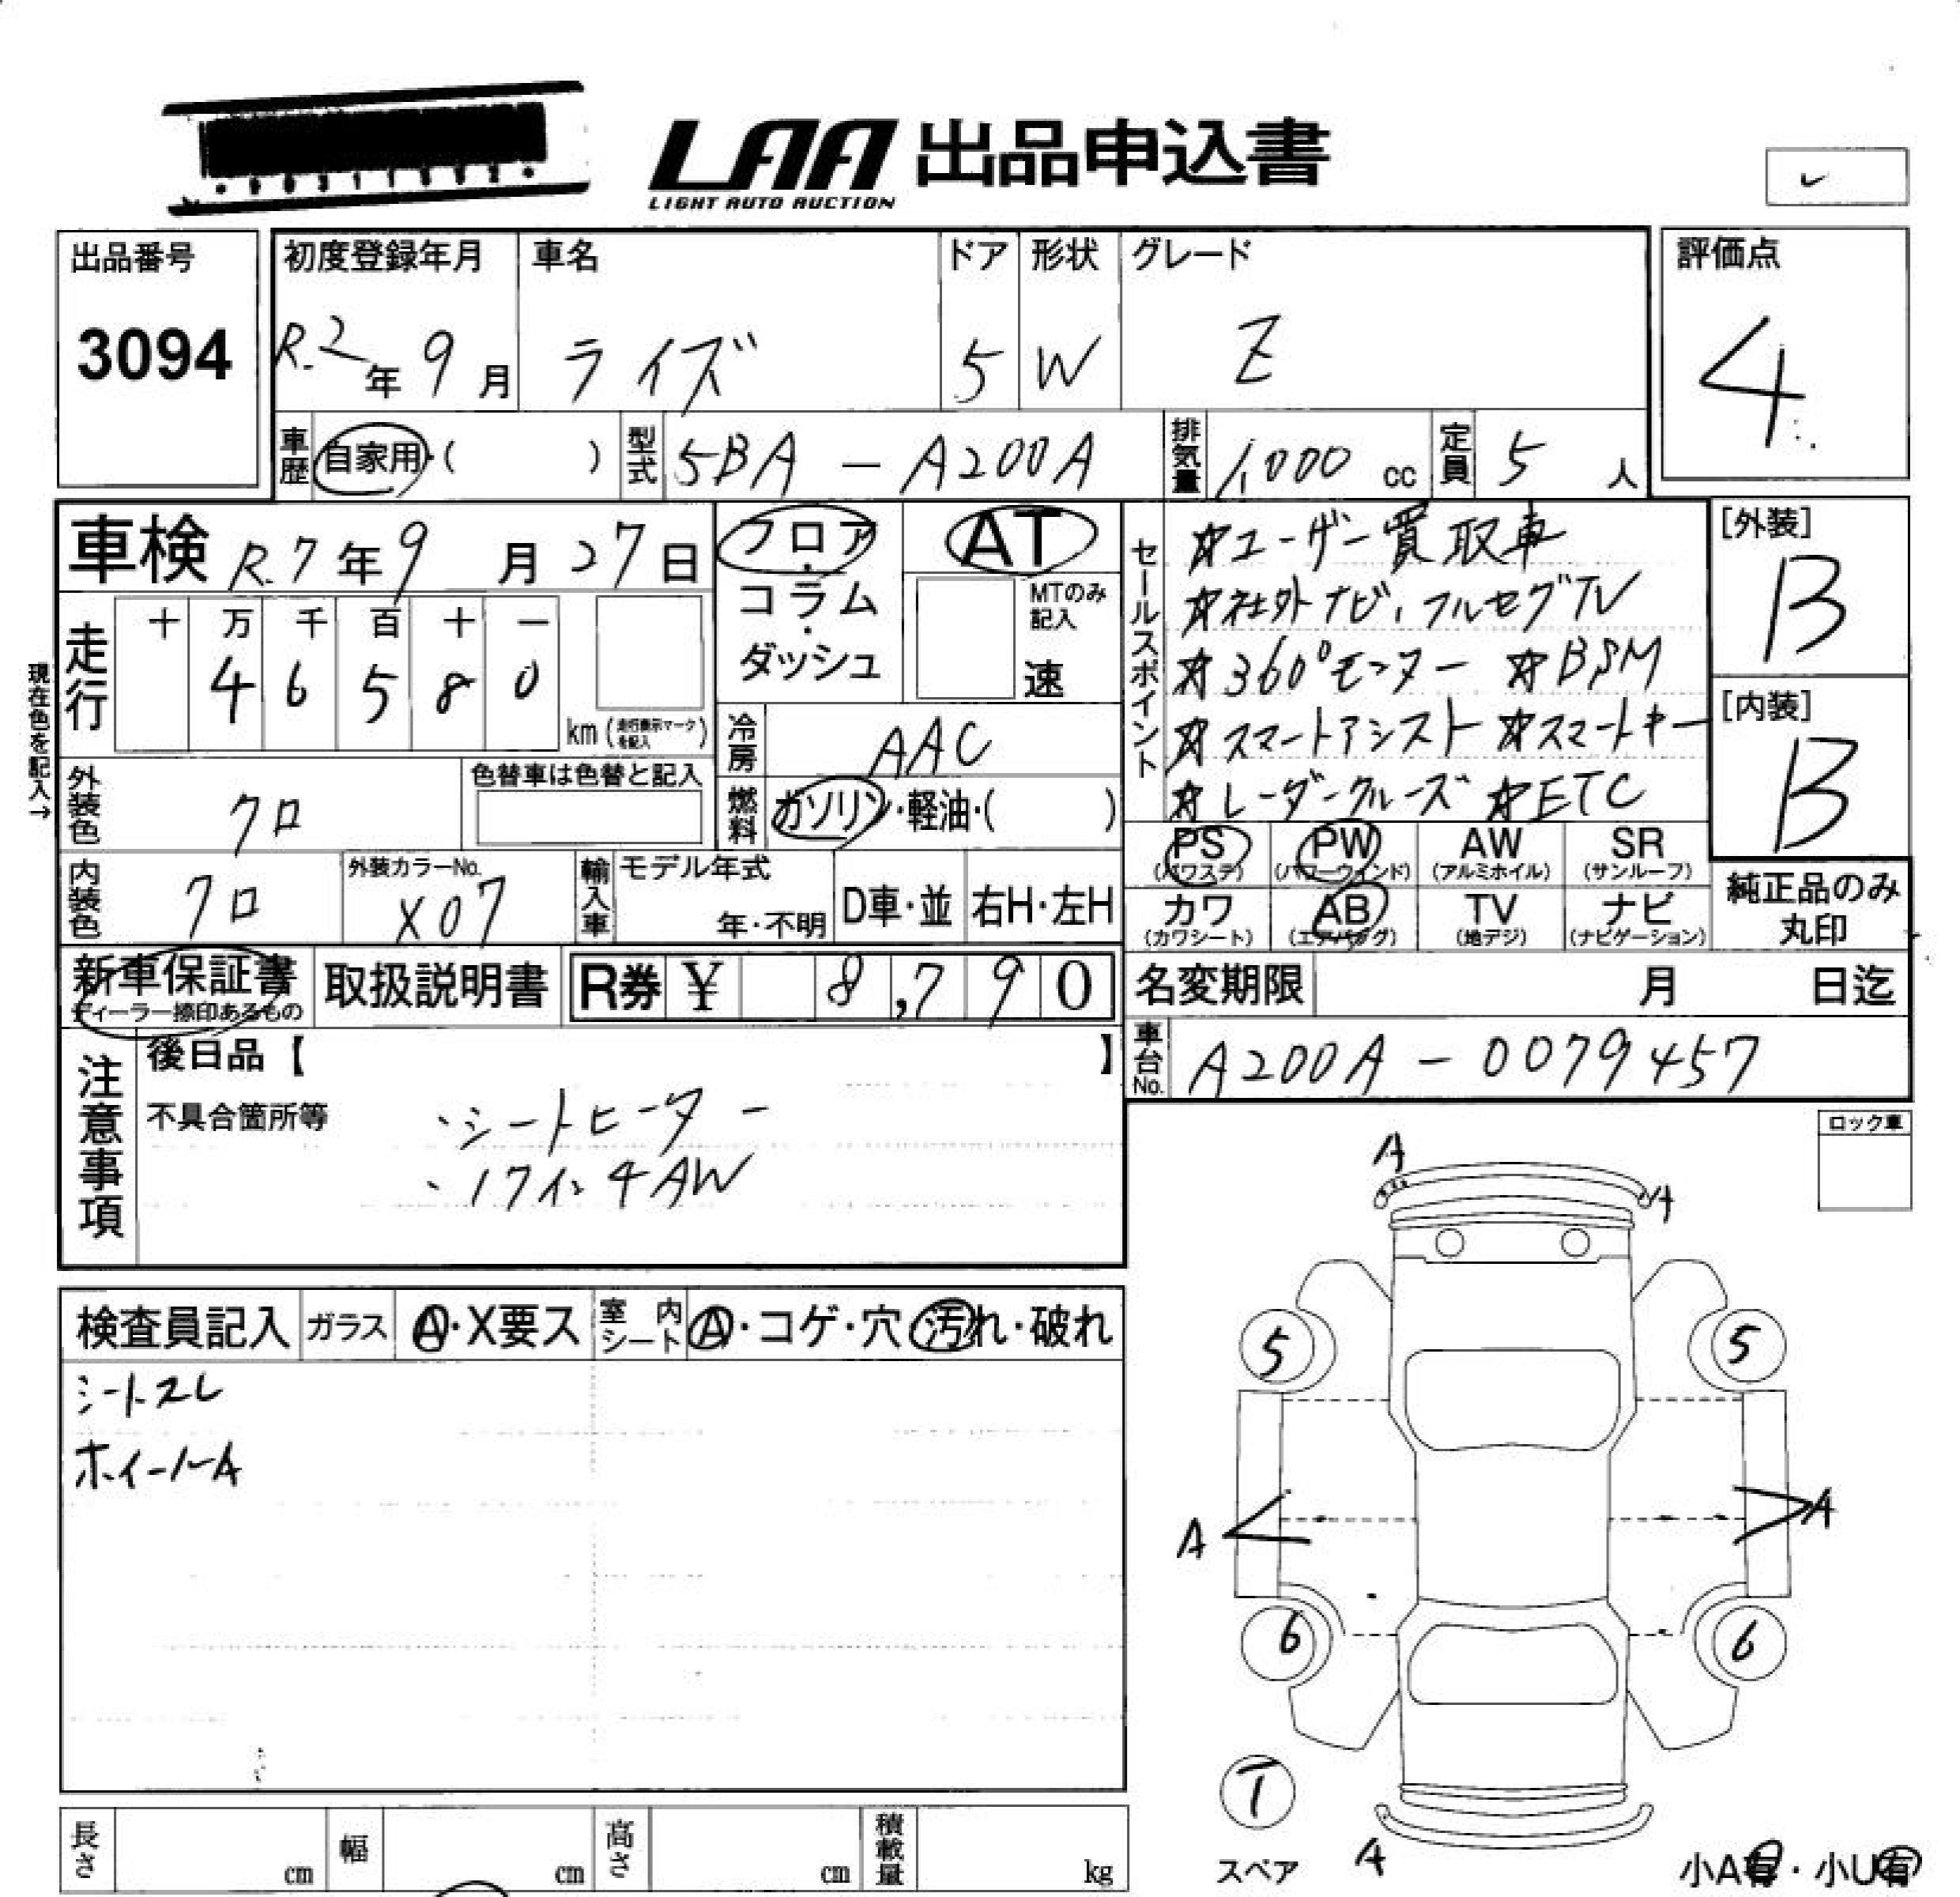 LAA 出品申込書
LIGHT AUTO AUCTION
出品番号
3094
初度登録年月
R.2年9月
車名
ライズ
ドア
5
形状
W
グレード
Z
評価点
4
車歴
自家用・( )
型式
5BA－A200A
排気量
1,000 cc
定員
5 人
車検 R.7年9月27日
フロア・コラム・ダッシュ
AT
MTのみ記入
速
セールスポイント
☆ユーザー買取車
☆社外ナビ、フルセグTV
☆360°モニター ☆BSM
☆スマートアシスト ☆スマートキー
☆レーダークルーズ ☆ETC
[外装]
B
[内装]
B
現在色を記入→
走行
十 万 千 百 十 一
4 6 5 8 0
km (走行表示マークを記入)
冷房
AAC
外装色
クロ
色替車は色替と記入
燃料
ガソリン・軽油・( )
PS (パワステ)
PW (パワーウインド)
AW (アルミホイル)
SR (サンルーフ)
内装色
クロ
外装カラーNo.
X07
輸入車
モデル年式
年・不明
D車・並
右H・左H
カワ (カワシート)
AB (エアバッグ)
TV (地デジ)
ナビ (ナビゲーション)
純正品のみ
丸印
新車保証書
ディーラー捺印あるもの
取扱説明書
R券 ¥ 8,790
名変期限 月 日迄
車台No.
A200A－0079457
注意事項
後日品【 】
不具合箇所等
・シートヒーター
・17インチAW
ロック車
検査員記入
ガラス
A・X要ス
室内シート
A・コゲ・穴・汚れ・破れ
シートスレ
ホイールA
A
A
5
5
A
A
6
6
T
スペア
A
小A有・小U有
長さ cm
幅 cm
高さ cm
積載量 kg